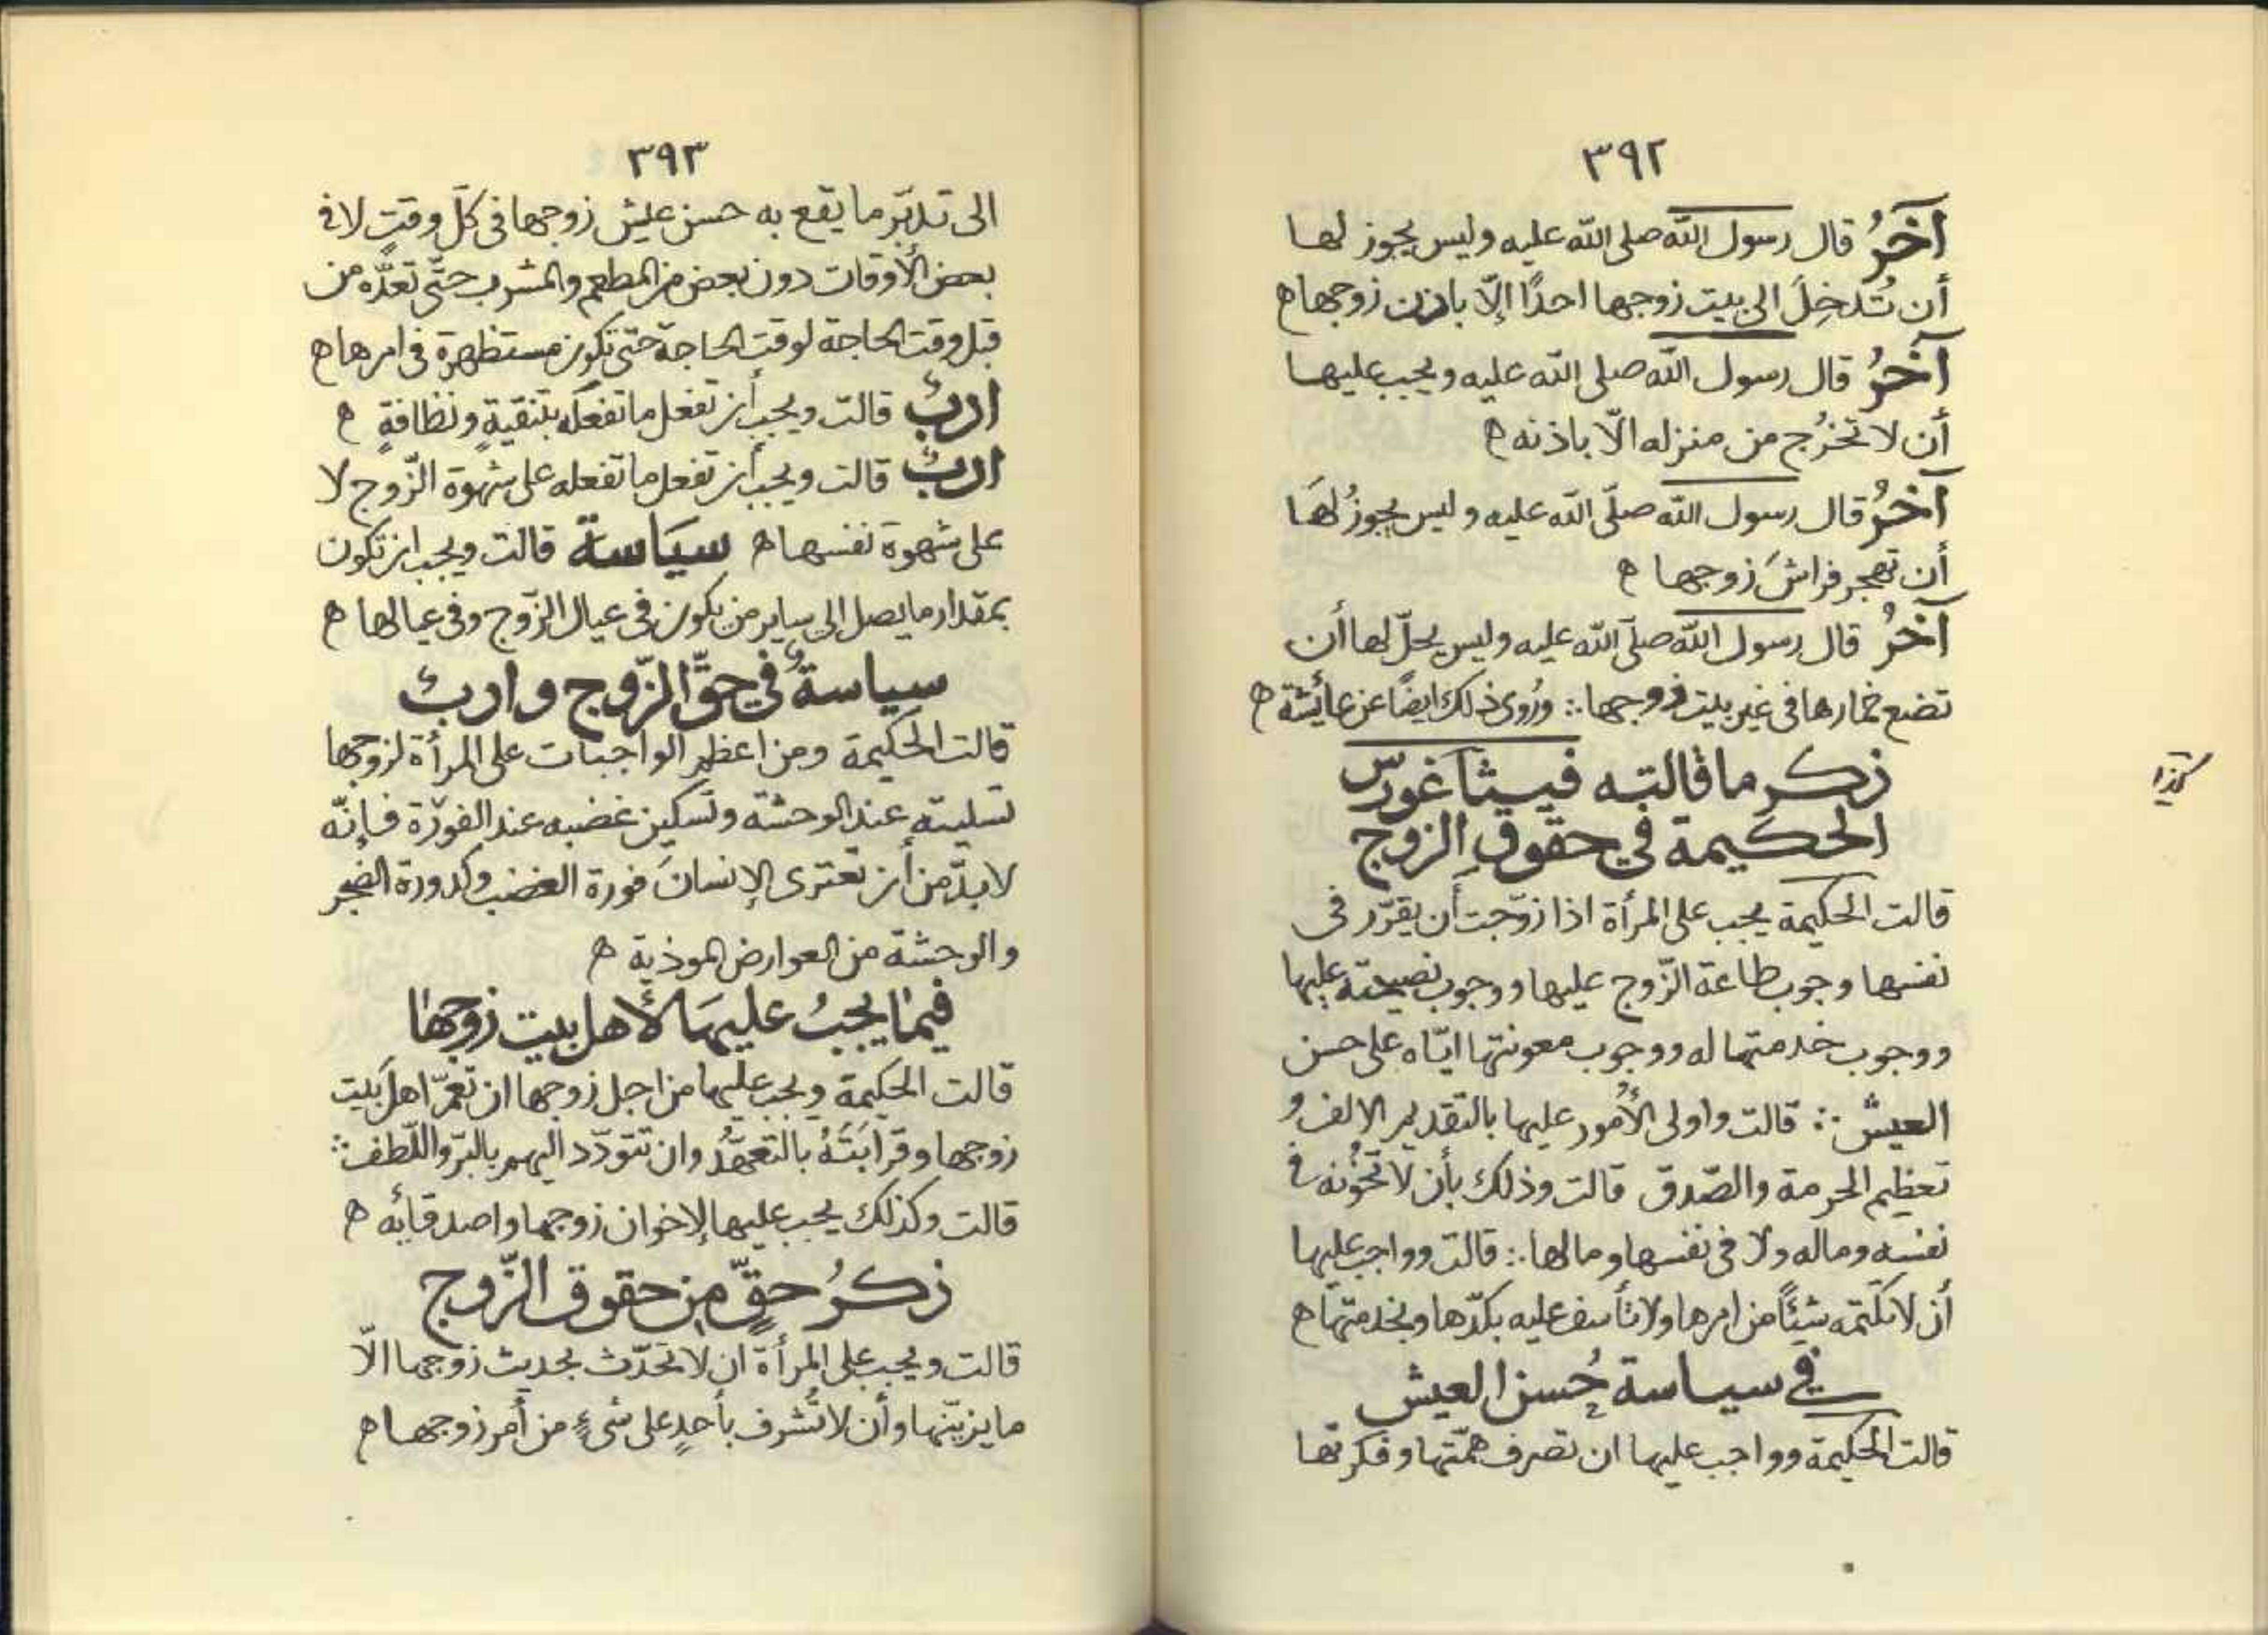 ٣٩٢
آخرُ قال رسول الله صلى الله عليه وليس يجوز لها
أن تُدخِلَ الى بيت زوجها احدًا إلّا باذن زوجها ھ
آخرُ قال رسول الله صلى الله عليه ويجب عليها
أن لا تخرُج من منزله الّا باذنه ھ
آخرُ قال رسول الله صلّى الله عليه وليس يجوزُ لهَا
أن تهجر فراشَ زوجها ھ
آخرُ قال رسول الله صلّى الله عليه وليس يحلّ لها أن
تضع خمارها في غير بيت زوجها ∴ ورُوى ذلك ايضًا عن عائشة ھ
ذكر ما قالته فيثاغورس
الحكيمة في حقوق الزوج
كذا
قالت الحكيمة يجب على المرأة اذا زوّجت أن يقرّر فى
نفسها وجوب طاعة الزّوج عليها ووجوب نصيحته عليها
ووجوب خدمتها له ووجوب معونتها ايّاه على حسن
العيش ∴ قالت واولى الأُمور عليها بالتقديم الالف و
تعظيم الحرمة والصّدق قالت وذلك بأن لا تخُونه فى
نفسه وماله ولا فى نفسها ومالها ∴ قالت وواجب عليها
أن لا تكتمه شيئًا من امرها ولا تأسف عليه بكدّها وبخدمتها ھ
في سياسة حُسن العيش
قالت الحكيمة وواجب عليها ان تصرف همّتها وفكرتها
٣٩٣
الى تدبّر ما يقع به حسن عيش زوجها فى كلّ وقتٍ لا فى
بعض الأوقات دون بعض من المطعم والمشرب حتّى تعدّه من
قبل وقت الحاجة لوقت الحاجة حتى تكون مستظهرة فى امرها ھ
ادبٌ قالت ويجب أن تفعل ما تفعله بتنقيةٍ ونظافةٍ ھ
ادبٌ قالت ويجب أن تفعل ما تفعله على شهوة الزّوج لا
على شهوة نفسها ھ سيَاسة قالت ويجب ان تكون
بمقدار ما يصل الى ساير من يكون فى عيال الزّوج وفى عيالها ھ
سياسةٌ في حقّ الزّوج وادبٌ
قالت الحكيمة ومن اعظم الواجبات على المرأة لزوجها
تسليته عند الوحشة وتسكين غضبه عند الفورة فإنّه
لا بدّ من أن تعترى الإنسانَ فورة الغضب وكدورة الضجر
والوحشة من العوارض الموذية ھ
فيما يجبُ عليها لأهل بيت زوجها
قالت الحكيمة ويجب عليها من اجل زوجها ان تعمّ اهل بَيت
زوجها وقرابَتَهُ بالتعهّد وان تتودّد اليهم بالبرّ واللّطف ∴
قالت وكذلك يجب عليها لإخوان زوجها واصدقائه ھ
ذكرُ حقٍّ من حقوق الزّوج
قالت ويجب على المرأة ان لا تحدّث بحديث زوجها الّا
ما يزيّنها وأن لا تُشرف بأحدٍ على شىءٍ من أمر زوجها ھ